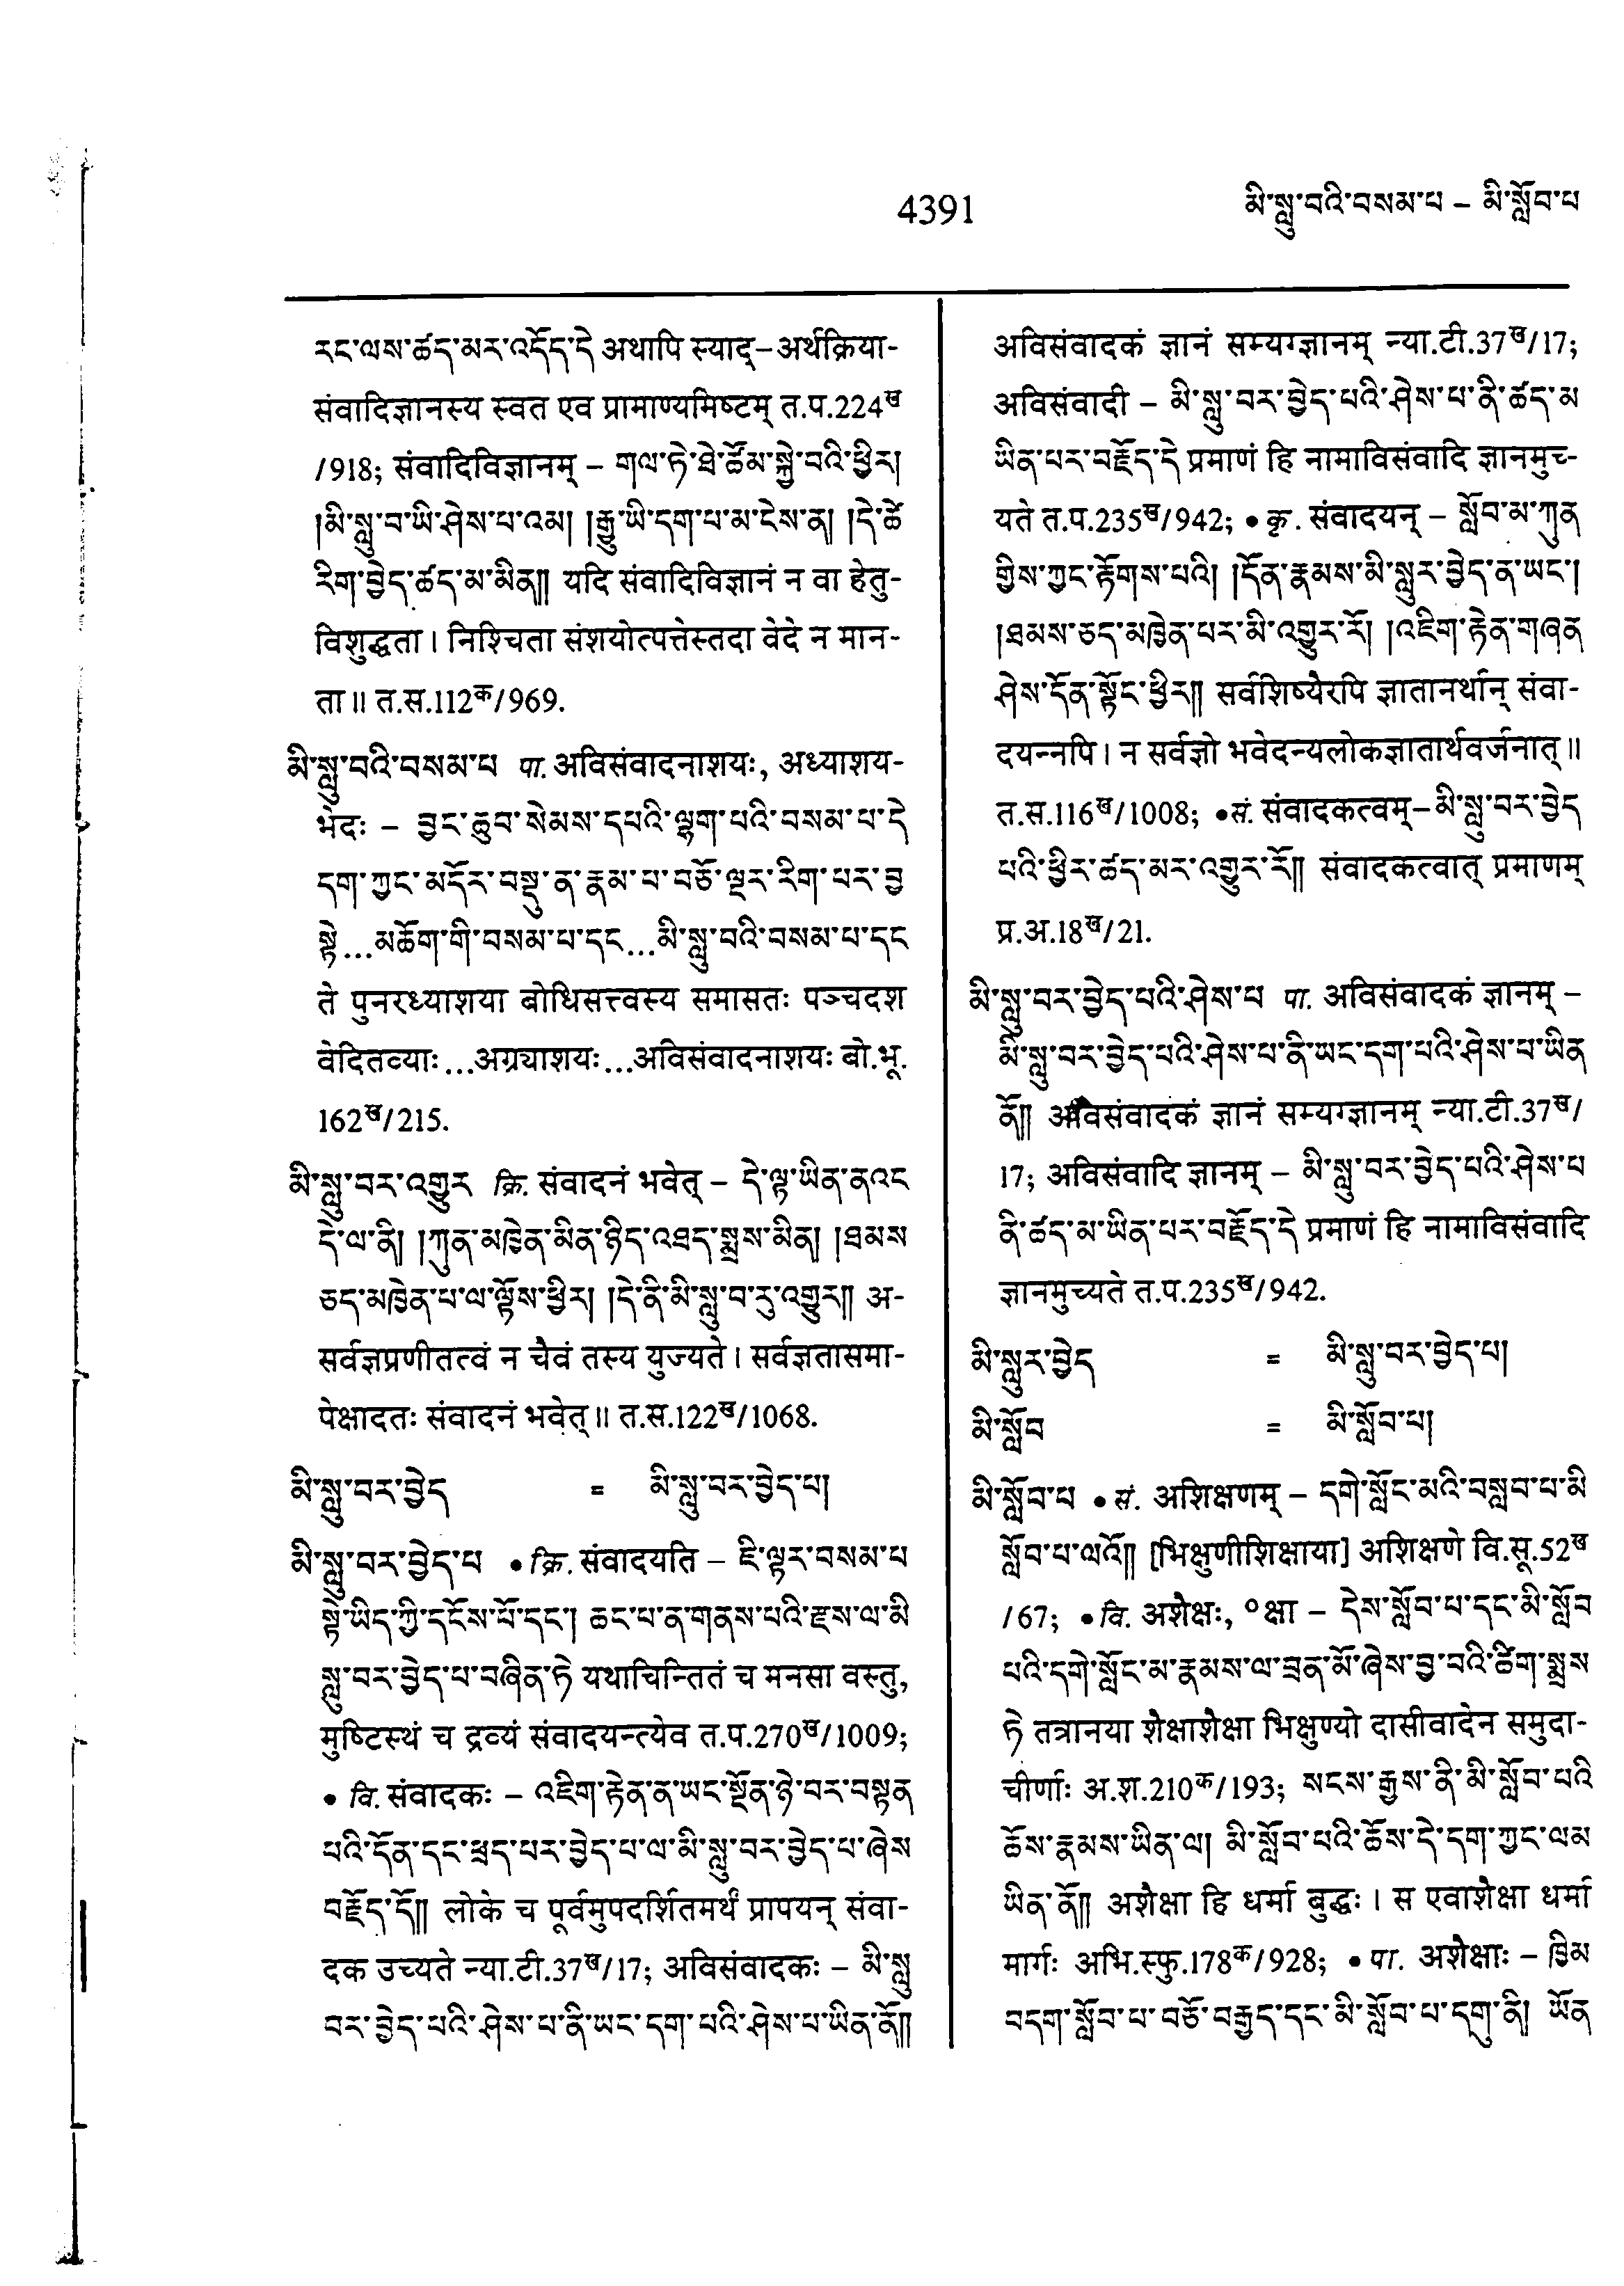 4391
མི་སླུ་བའི་བསམ་པ – མི་སློབ་པ
རང་ལས་ཚད་མར་འདོད་དེ अथापि स्याद्–अर्थक्रिया-
संवादिज्ञानस्य स्वत एव प्रामाण्यमिष्टम् त.प.224ख
/918; संवादिविज्ञानम् – གལ་ཏེ་ཐེ་ཚོམ་སྐྱེ་བའི་ཕྱིར།
།མི་སླུ་བ་ཡི་ཤེས་པ་འམ། །རྒྱུ་ཡི་དག་པ་མ་ངེས་ན། །དེ་ཚེ
རིག་བྱེད་ཚད་མ་མིན།། यदि संवादिविज्ञानं न वा हेतु-
विशुद्धता। निश्चिता संशयोत्पत्तेस्तदा वेदे न मान-
ता॥ त.स.112क/969.
མི་སླུ་བའི་བསམ་པ पा. अविसंवादनाशयः, अध्याशय-
भेदः – བྱང་ཆུབ་སེམས་དཔའི་ལྷག་པའི་བསམ་པ་དེ
དག་ཀྱང་མདོར་བསྡུ་ན་རྣམ་པ་བཅོ་ལྔར་རིག་པར་བྱ
སྟེ...མཆོག་གི་བསམ་པ་དང...མི་སླུ་བའི་བསམ་པ་དང
ते पुनरध्याशया बोधिसत्त्वस्य समासतः पञ्चदश
वेदितव्याः...अग्र्याशयः...अविसंवादनाशयः बो.भू.
162ख/215.
མི་སླུ་བར་འགྱུར क्रि. संवादनं भवेत् – དེ་ལྟ་ཡིན་ནའང
དེ་ལ་ནི། །ཀུན་མཁྱེན་མིན་ཉིད་འཐད་སྨྲས་མིན། །ཐམས
ཅད་མཁྱེན་པ་ལ་ལྟོས་ཕྱིར། །དེ་ནི་མི་སླུ་བ་རུ་འགྱུར།། अ-
सर्वज्ञप्रणीतत्वं न चैवं तस्य युज्यते। सर्वज्ञतासमा-
पेक्षादतः संवादनं भवेत्॥ त.स.122ख/1068.
མི་སླུ་བར་བྱེད = མི་སླུ་བར་བྱེད་པ།
མི་སླུ་བར་བྱེད་པ • क्रि. संवादयति – ཇི་ལྟར་བསམ་པ
སྟེ་ཡིད་ཀྱི་དངོས་པོ་དང་། ཆང་པ་ན་གནས་པའི་རྫས་ལ་མི
སླུ་བར་བྱེད་པ་བཞིན་ཏེ यथाचिन्तितं च मनसा वस्तु,
मुष्टिस्थं च द्रव्यं संवादयन्त्येव त.प.270ख/1009;
• वि. संवादकः – འཇིག་རྟེན་ན་ཡང་སྔོན་ཉེ་བར་བསྟན
པའི་དོན་དང་ཕྲད་པར་བྱེད་པ་ལ་མི་སླུ་བར་བྱེད་པ་ཞེས
བརྗོད་དོ།། लोके च पूर्वमुपदर्शितमर्थं प्रापयन् संवा-
दक उच्यते न्या.टी.37ख/17; अविसंवादकः – མི་སླུ
བར་བྱེད་པའི་ཤེས་པ་ནི་ཡང་དག་པའི་ཤེས་པ་ཡིན་ནོ།།
अविसंवादकं ज्ञानं सम्यग्ज्ञानम् न्या.टी.37ख/17;
अविसंवादी – མི་སླུ་བར་བྱེད་པའི་ཤེས་པ་ནི་ཚད་མ
ཡིན་པར་བརྗོད་དེ प्रमाणं हि नामाविसंवादि ज्ञानमुच्-
यते त.प.235ख/942; • कृ. संवादयन् – སློབ་མ་ཀུན
གྱིས་ཀྱང་རྟོགས་པའི། །དོན་རྣམས་མི་སླུར་བྱེད་ན་ཡང་།
།ཐམས་ཅད་མཁྱེན་པར་མི་འགྱུར་རོ། །འཇིག་རྟེན་གཞན
ཤེས་དོན་སྟོང་ཕྱིར།། सर्वशिष्यैरपि ज्ञातानर्थान् संवा-
दयन्नपि। न सर्वज्ञो भवेदन्यलोकज्ञातार्थवर्जनात्॥
त.स.116ख/1008; •सं. संवादकत्वम्–མི་སླུ་བར་བྱེད
པའི་ཕྱིར་ཚད་མར་འགྱུར་རོ།། संवादकत्वात् प्रमाणम्
प्र.अ.18ख/21.
མི་སླུ་བར་བྱེད་པའི་ཤེས་པ पा. अविसंवादकं ज्ञानम् –
མི་སླུ་བར་བྱེད་པའི་ཤེས་པ་ནི་ཡང་དག་པའི་ཤེས་པ་ཡིན
ནོ།། अविसंवादकं ज्ञानं सम्यग्ज्ञानम् न्या.टी.37ख/
17; अविसंवादि ज्ञानम् – མི་སླུ་བར་བྱེད་པའི་ཤེས་པ
ནི་ཚད་མ་ཡིན་པར་བརྗོད་དེ प्रमाणं हि नामाविसंवादि
ज्ञानमुच्यते त.प.235ख/942.
མི་སླུར་བྱེད = མི་སླུ་བར་བྱེད་པ།
མི་སློབ = མི་སློབ་པ།
མི་སློབ་པ • सं. अशिक्षणम् – དགེ་སློང་མའི་བསླབ་པ་མི
སློབ་པ་ལའོ།། [भिक्षुणीशिक्षाया] अशिक्षणे वि.सू.52ख
/67; • वि. अशैक्षः, ०क्षा – དེས་སློབ་པ་དང་མི་སློབ
པའི་དགེ་སློང་མ་རྣམས་ལ་བྲན་མོ་ཞེས་བྱ་བའི་ཚིག་སྨྲས
ཏེ तत्रानया शैक्षाशैक्षा भिक्षुण्यो दासीवादेन समुदा-
चीर्णाः अ.श.210क/193; སངས་རྒྱས་ནི་མི་སློབ་པའི
ཆོས་རྣམས་ཡིན་ལ། མི་སློབ་པའི་ཆོས་དེ་དག་ཀྱང་ལམ
ཡིན་ནོ།། अशैक्षा हि धर्मा बुद्धः। स एवाशैक्षा धर्मा
मार्गः अभि.स्फु.178क/928; • पा. अशैक्षाः – ཁྱིམ
བདག་སློབ་པ་བཅོ་བརྒྱད་དང་མི་སློབ་པ་དགུ་ནི། ཡོན